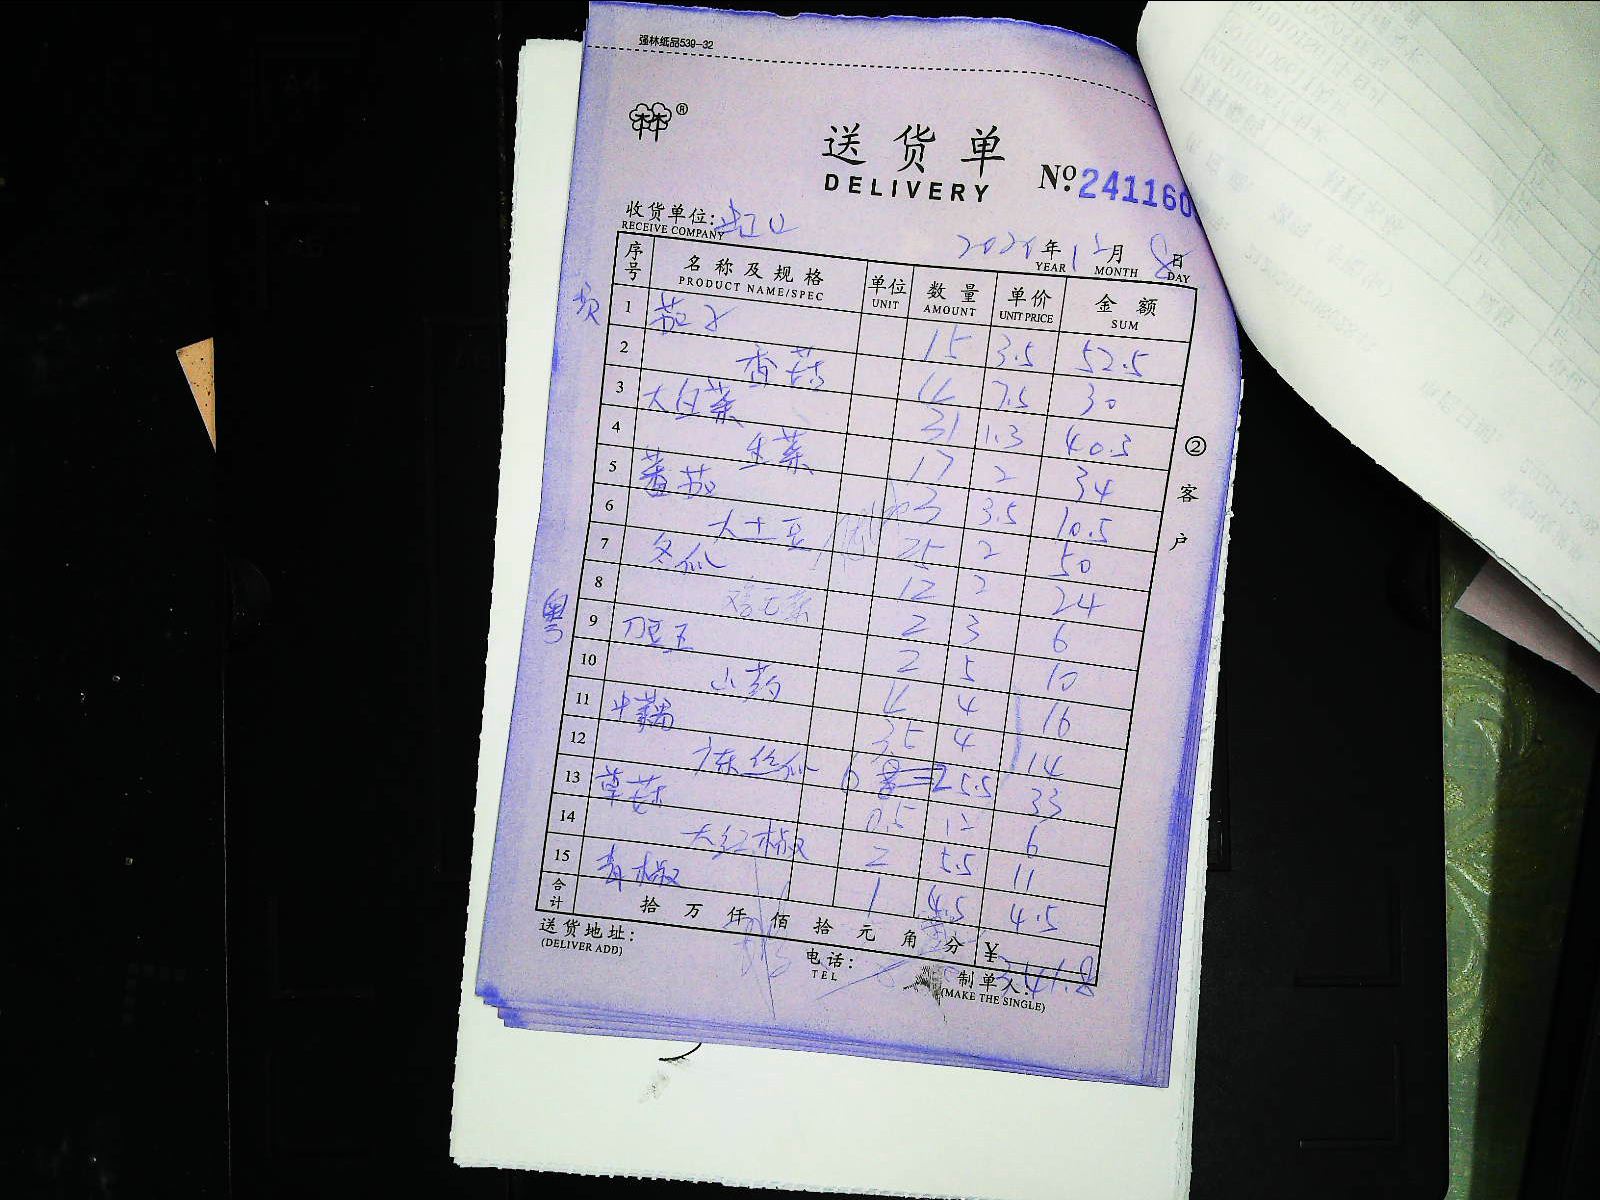 强林纸品539-32
林®
送货单
DELIVERY
№ 241160
收货单位:
RECEIVE COMPANY
年 12月 8日
YEAR MONTH DAY
序号 名称及规格 单位 数量 单价 金额
PRODUCT NAME/SPEC UNIT AMOUNT UNIT PRICE SUM
1 茄子 15 3.5 52.5
2 香菇 4 7.5 30
3 大白菜 31 1.3 40.3
4 生菜 17 2 34
5 番茄 3 3.5 10.5
6 大土豆 25 2 50
7 冬瓜 12 2 24
8 2 3 6
9 刀豆 2 5 10
10 山药 4 4 16
11 中藕 3.5 4 14
12 丝瓜 6 5.5 33
13 草菇 0.5 12 6
14 大红椒 2 5.5 11
15 青椒 1 4.5 4.5
合计 拾 万 仟 佰 拾 元 角 分 ¥ 341.8
送货地址:
(DELIVER ADD)
电话:
TEL
制单人:
(MAKE THE SINGLE)
②客户
粤